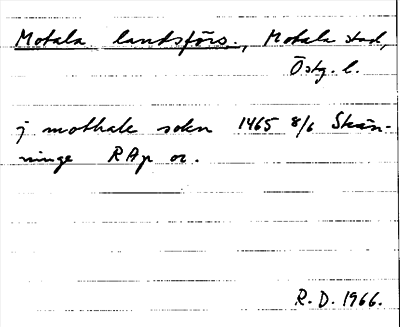 Motala landsförs., Motala stad,
Östg. l.
j mothale sokn 1465 8/6 Skän-
ninge RAp or.
R. D. 1966.